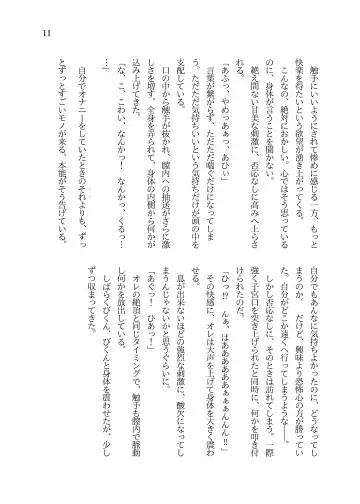 11
触手にいいようにされて惨めに感じる一方、もっと
快楽を得たいという欲望が湧き上がってくる。
こんなの、絶対におかしい。心ではそう思っている
のに、身体が言うことを聞かない。
絶え間ない甘美な刺激に、否応なしに高みへ上らさ
れる。
「あふっ、やめっあぁっ、あひぃ」
言葉が繋がらず、ただただ喘ぐだけになってしま
う。ただただ気持ちいいという気持ちだけが頭の中を
支配している。
口の中から触手が抜かれ、膣内への抽送がさらに激
しさを増す。全身を弄られて、身体の内側から何かが
込み上げてきた。
「な、こ、こわい、なんかっ!　なんかっ、くるっ…
…」
自分でオナニーをしていたときのそれよりも、ずっ
とずっとすごいモノが来る。本能がそう告げている。
自分でもあんなに気持ちよかったのに、どうなってし
まうのか。　だけど、興味より恐怖心の方が勝ってい
た。自分がどこか遠くへ行ってしまうような――。
しかし否応なしに、そのときは訪れてしまう。一際
強く子宮口を突き上げられたと同時に、何かを叩き付
けられたのだ。
「ひっ!?　んぁ、はああああああぁぁぁんんん!!」
その快感に、オレは大声を上げて身体を大きく震わ
せる。
息が出来ないほどの強烈な刺激に、酸欠になってし
まうんじゃないかと思うぐらいに。
「あぐっ!　ひあっ!」
オレの絶頂と同じタイミングで、触手も膣内で脈動
し何かを放出している。
しばらくびくん、びくんと身体を震わせたが、少し
ずつ収まってきた。